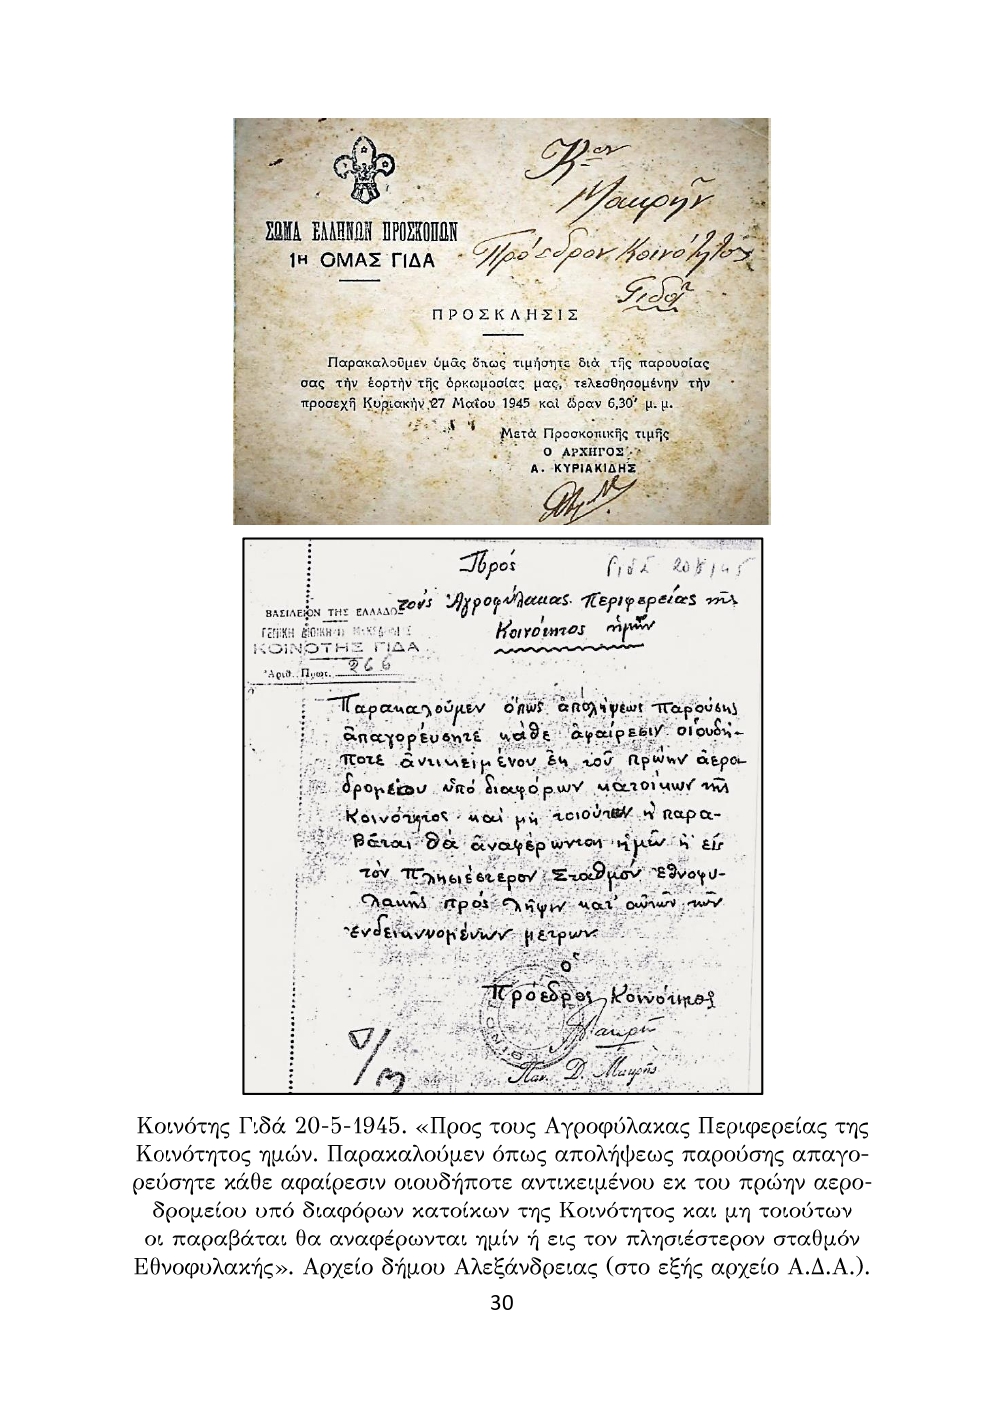 Κον
Μακρῆν
Πρόεδρον Κοινότητος
Γιδᾶ
ΣΩΜΑ ΕΛΛΗΝΩΝ ΠΡΟΣΚΟΠΩΝ
1η ΟΜΑΣ ΓΙΔΑ
ΠΡΟΣΚΛΗΣΙΣ
Παρακαλοῦμεν ὑμᾶς ὅπως τιμήσητε διὰ τῆς παρουσίας
σας τὴν ἑορτὴν τῆς ὁρκωμοσίας μας, τελεσθησομένην τὴν
προσεχῆ Κυριακὴν 27 Μαΐου 1945 καὶ ὥραν 6,30' μ. μ.
Μετὰ Προσκοπικῆς τιμῆς
Ο ΑΡΧΗΓΟΣ
Α. ΚΥΡΙΑΚΙΔΗΣ
Πρός
Γιδᾶ 20/5/45
τούς Ἀγροφύλακας Περιφερείας τῆς
Κοινότητος ἡμῶν
ΒΑΣΙΛΕΙΟΝ ΤΗΣ ΕΛΛΑΔΟΣ
ΓΕΝΙΚΗ ΔΙΟΙΚΗΣΙΣ ΜΑΚΕΔΟΝΙΑΣ
ΚΟΙΝΟΤΗΣ ΓΙΔΑ
Ἀριθ. Πρωτ. 266
Παρακαλούμεν ὅπως ἀπολήψεως παρούσης
ἀπαγορεύσητε κάθε ἀφαίρεσιν οἱουδή-
ποτε ἀντικειμένου ἐκ τοῦ πρώην ἀερο-
δρομείου ὑπό διαφόρων κατοίκων τῆς
Κοινότητος καί μή τοιούτων ἡ παρα-
βάται θά ἀναφέρωνται ἡμῖν ἤ εἰς
τόν πλησιέστερον Σταθμόν Ἐθνοφυ-
λακῆς πρός λῆψιν κατ' αὐτῶν τῶν
ἐνδεικνυομένων μέτρων
ὁ
Πρόεδρος Κοινότητος
Παν. Δ. Μακρῆς
Κοινότης Γιδά 20-5-1945. «Προς τους Αγροφύλακας Περιφερείας της
Κοινότητος ημών. Παρακαλούμεν όπως απολήψεως παρούσης απαγο-
ρεύσητε κάθε αφαίρεσιν οιουδήποτε αντικειμένου εκ του πρώην αερο-
δρομείου υπό διαφόρων κατοίκων της Κοινότητος και μη τοιούτων
οι παραβάται θα αναφέρωνται ημίν ή εις τον πλησιέστερον σταθμόν
Εθνοφυλακής». Αρχείο δήμου Αλεξάνδρειας (στο εξής αρχείο Α.Δ.Α.).
30